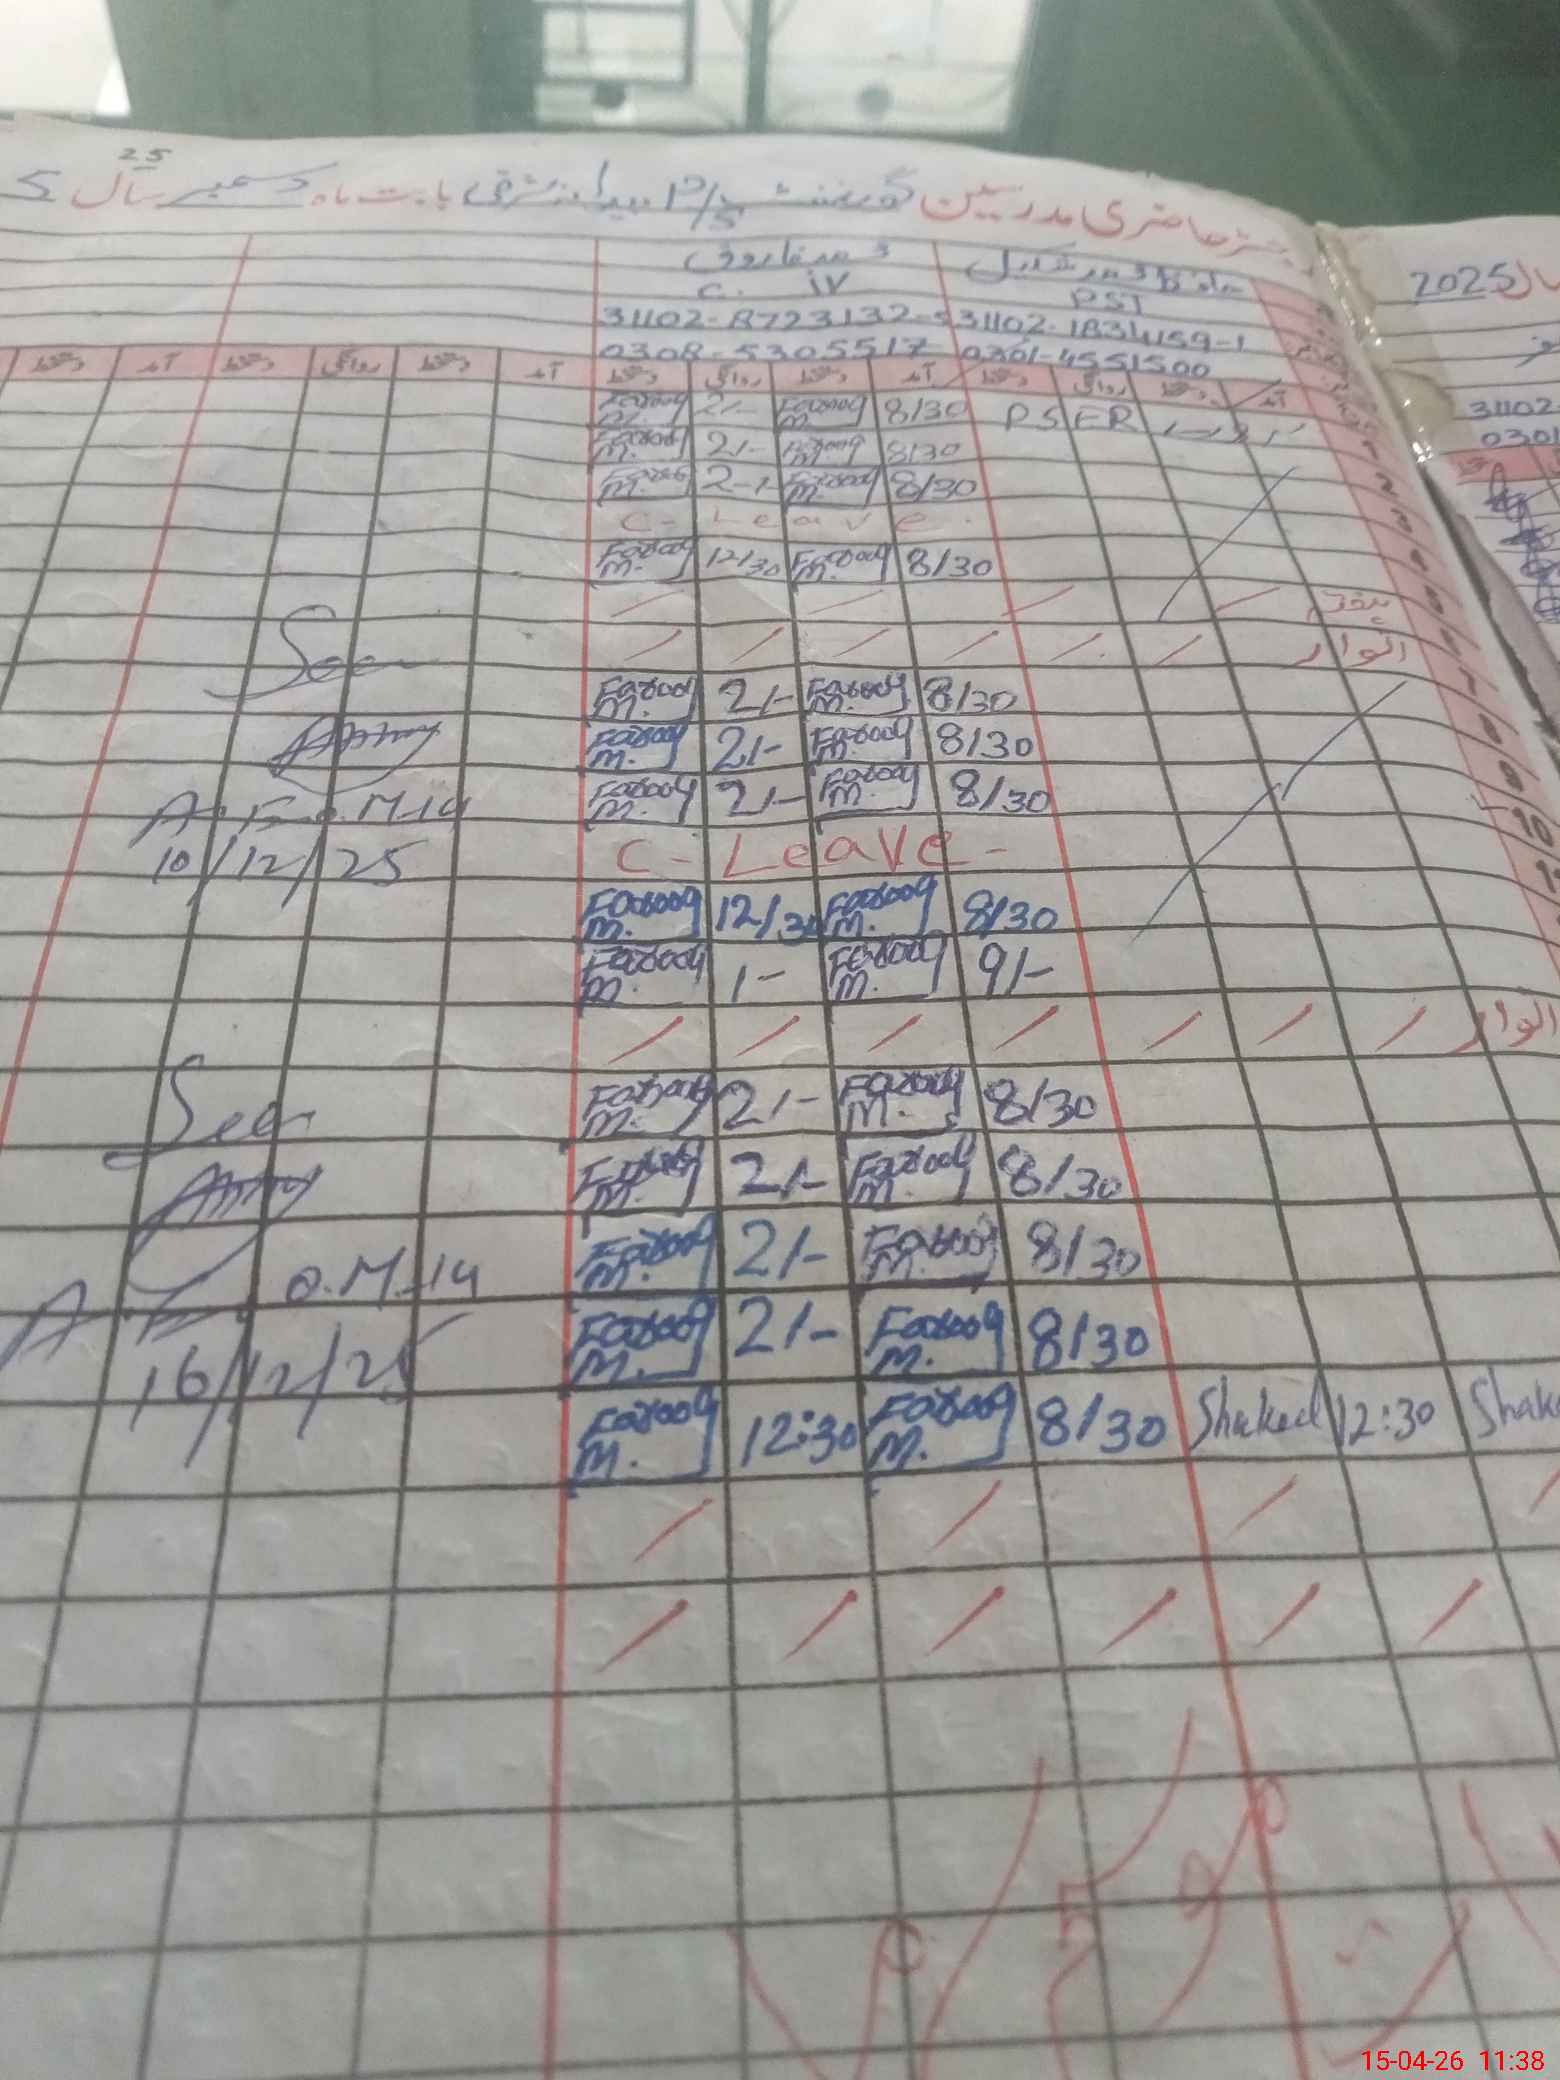 25
رجسٹر حاضری مدرسین گورنمنٹ P/S بابت ماہ دسمبر سال
محمد فاروق
C. iv
PST
31102-8723132-5 31102-1834159-1
0308-5305517 0301-4551500
2025 سال
31102
0301
دستخط آمد دستخط روانگی دستخط آمد دستخط روانگی دستخط آمد دستخط روانگی دستخط آمد
Farooq M. 2/- Farooq M. 8/30 PSER
Farooq M. 2/- Farooq M. 8/30
Farooq M. 2-/ Farooq M. 8/30
C- Leave.
Farooq M. 12/30 Farooq M. 8/30
ہفتہ
اتوار
Seen
Farooq M. 2/- Farooq M. 8/30
Farooq M. 2/- Farooq M. 8/30
A. E. O. M-14 Farooq M. 2/- Farooq M. 8/30
10/12/25 C- Leave-
Farooq M. 12/30 Farooq M. 8/30
Farooq M. 1- Farooq M. 9/-
اتوار
Seen Farooq M. 2/- Farooq M. 8/30
Farooq M. 2/- Farooq M. 8/30
A. E. O. M-14 Farooq M. 2/- Farooq M. 8/30
16/12/25 Farooq M. 2/- Farooq M. 8/30
Farooq M. 12:30 Farooq M. 8/30 Shakeel 12:30 Shak
15-04-26 11:38